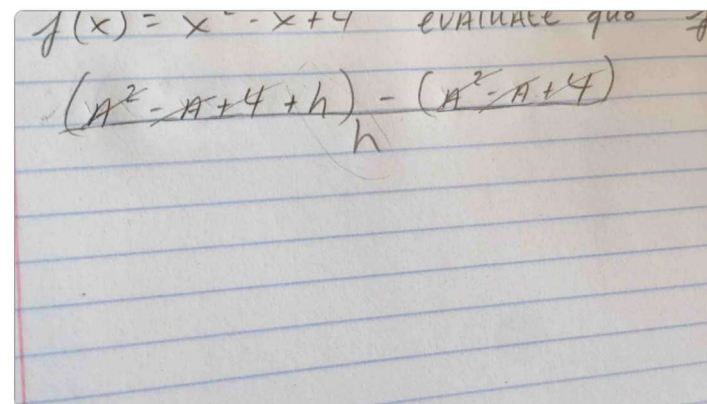 f(x) = x² - x + 4 evaluate quo f
(A² - A + 4 + h) - (A² - A + 4)
h